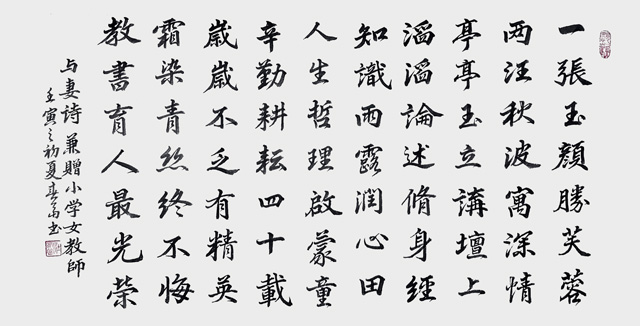 一張玉顏勝芙蓉
两汪秋波寓深情
亭亭玉立講壇上
滔滔論述脩身經
知識雨露潤心田
人生哲理啟蒙童
辛勤耕耘四十載
歲歲不乏有精英
霜染青丝終不悔
教書育人最光荣
与妻詩兼贈小学女教師
壬寅之初夏